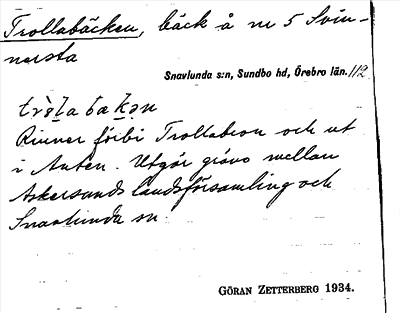 Trollabäcken, bäck å nr 5 Svin-
nersta
Snavlunda s:n, Sundbo hd, Örebro län. 112
Rinner förbi Trollabron och ut
i Anten. Utgör gräns mellan
Askersunds landsförsamling och
Snavlunda sn.
GÖRAN ZETTERBERG 1934.